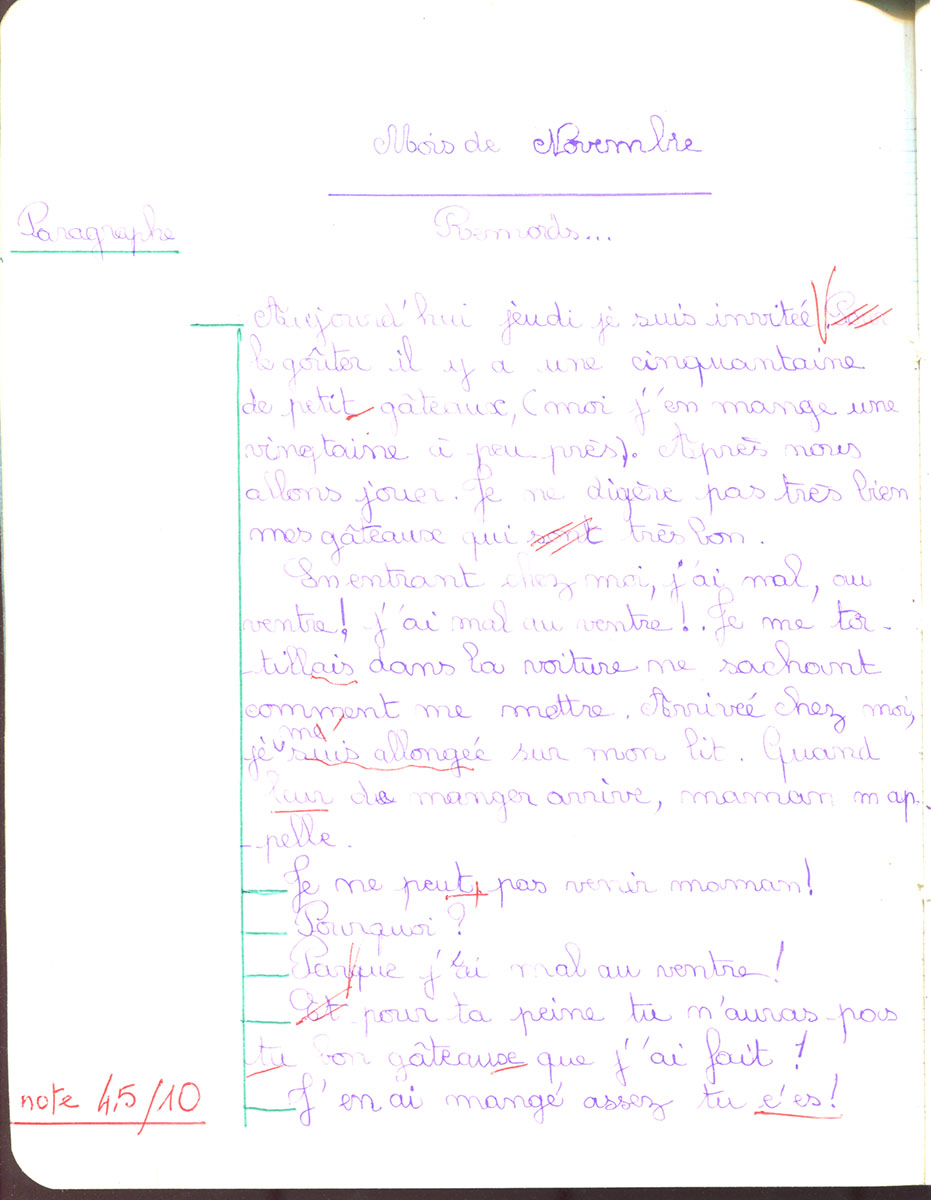 Mois de Novembre
Paragraphe
Remords...
Aujourd'hui jeudi je suis invitée. Pour
le goûter il y a une cinquantaine
de petit gâteaux, (moi j'en mange une
vingtaine à peu près). Après nous
allons jouer. Je ne digère pas très bien
mes gâteaux qui sont très bon.
En entrant chez moi, j'ai mal, au
ventre! j'ai mal au ventre!. Je me tor-
tillais dans la voiture ne sachant
comment me mettre. Arrivée chez moi,
je me suis allongée sur mon lit. Quand
leur de manger arrive, maman m'ap-
pelle.
Je ne peut, pas venir maman!
Pourquoi?
Parque j'ai mal au ventre!
Et pour ta peine tu n'auras pas
tu bon gâteaux que j'ai fait!
J'en ai mangé assez tu c'es!
note 4,5/10